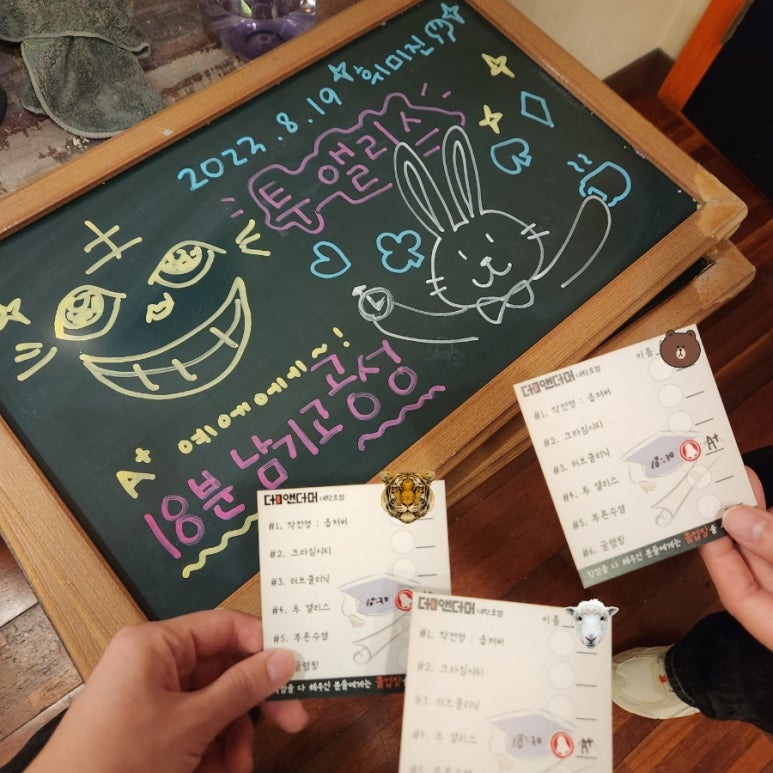 2023.8.19
투 앨리스
A+ 예에에에~!
18분 남기고 공성
더앤더머 대탁조할
이름
#1. 작전명 : 옵저버
#2. 크라임시티
#3. 러브클리닉
#4. 투 앨리스
18:30
A+
#5. 푸른수염
#6. 굴럼핑
학점을 다 채우신 분들에게는 졸업장을
더앤더머
#1. 작전명 : 옵저버
#2. 크라임시티
#3. 러브클리닉
#4. 투 앨리스
18:30
#5. 푸른수염
굴럼핑
점을 다 채우신 분들에게는 졸업장
더앤더머
이름
#1. 작전명 : 옵저버
#2. 크라임시티
#3. 러브클리닉
#4. 투 앨리스
18:30
A+